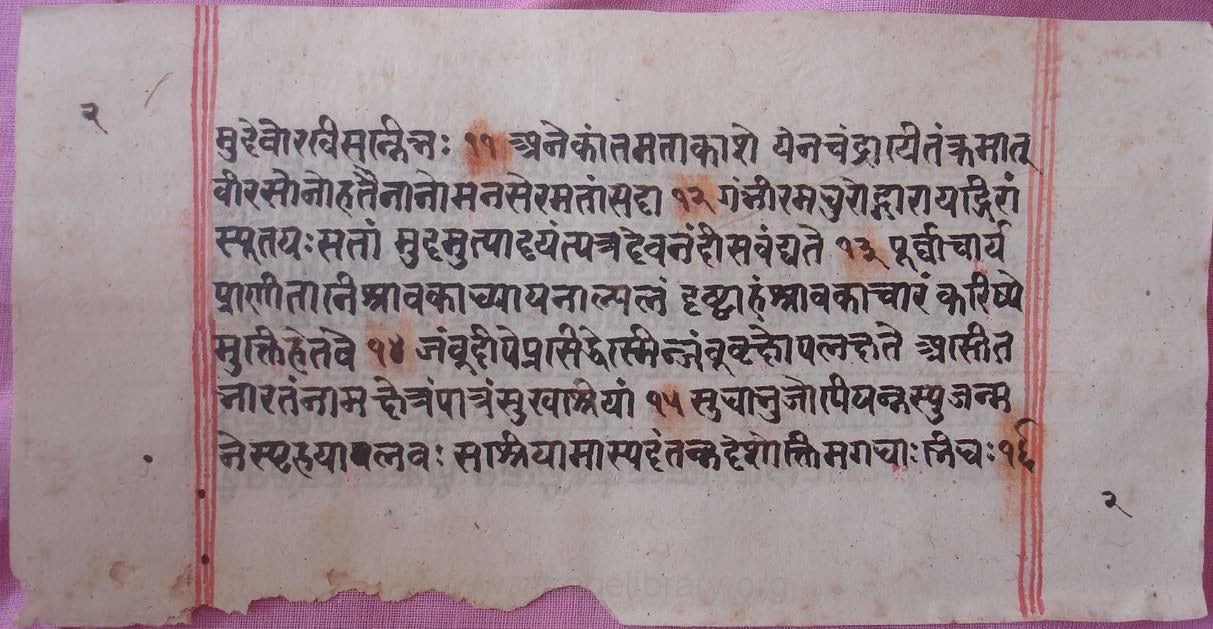 २
मुदेवोरविसन्निनः ११ अनेकांतमताकाशे येनचंद्रायितंक्रमात्
वीरसौनोहतैनानोमनसेरमतांसदा १२ गंनीरमधुरोद्गारायद्गिरां
स्मृतयःसतां मुदमुत्पादयंत्पत्रदेवनंदीसवंद्यते १३ पूर्वाचार्य
प्राणीतानिश्रावकाध्यायनाल्पलं दृष्ट्वाहंश्रावकाचारं करिष्ये
मुक्तिहेतवे १४ जंबूद्वीपेप्रसिद्देस्मिन्जंबूवृक्षोपलक्षते अस्तीत
नारतंनामक्षेत्रंपात्रंसुखाश्रियां १५ सुधानुजोपीयन्नस्पुजन्म
नेस्पृहयापलवः सश्रियामास्पदंतत्रदेशोक्तिमगधाःनिधः१६
२